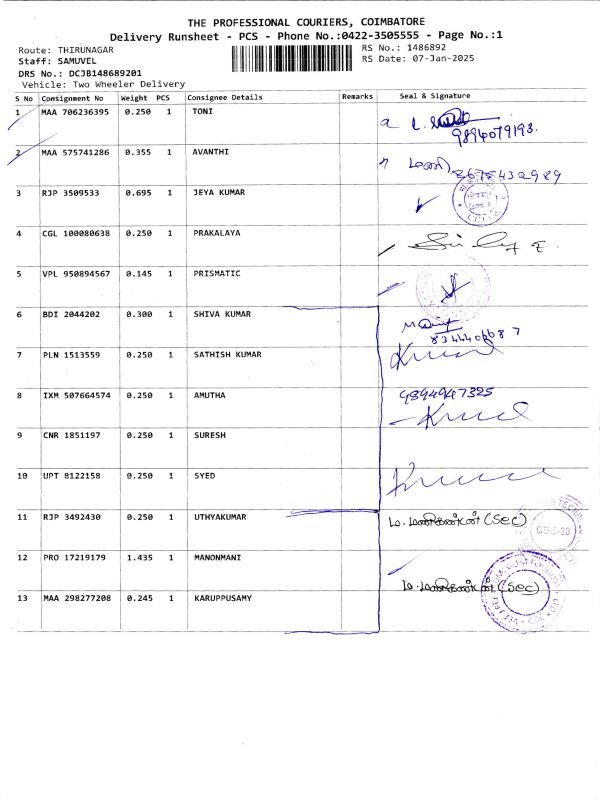 THE PROFESSIONAL COURIERS, COIMBATORE
Delivery Runsheet - PCS - Phone No.:0422-3505555 - Page No.:1
Route: THIRUNAGAR
RS No.: 1486892
Staff: SAMUVEL
RS Date: 07-Jan-2025
DRS No.: DCJB148689201
Vehicle: Two Wheeler Delivery
S No Consignment No Weight PCS Consignee Details Remarks Seal & Signature
1 MAA 706236395 0.250 1 TONI
9894079193.
2 MAA 575741286 0.355 1 AVANTHI
8675432989
3 RJP 3509533 0.695 1 JEYA KUMAR
4 CGL 100080638 0.250 1 PRAKALAYA
5 VPL 950894567 0.145 1 PRISMATIC
6 BDI 2044202 0.300 1 SHIVA KUMAR
7 PLN 1513559 0.250 1 SATHISH KUMAR
8 IXM 507664574 0.250 1 AMUTHA 9894947325
9 CNR 1851197 0.250 1 SURESH
10 UPT 8122158 0.250 1 SYED
11 RJP 3492430 0.250 1 UTHYAKUMAR (Sec)
12 PRO 17219179 1.435 1 MANONMANI
(Sec)
13 MAA 298277208 0.245 1 KARUPPUSAMY